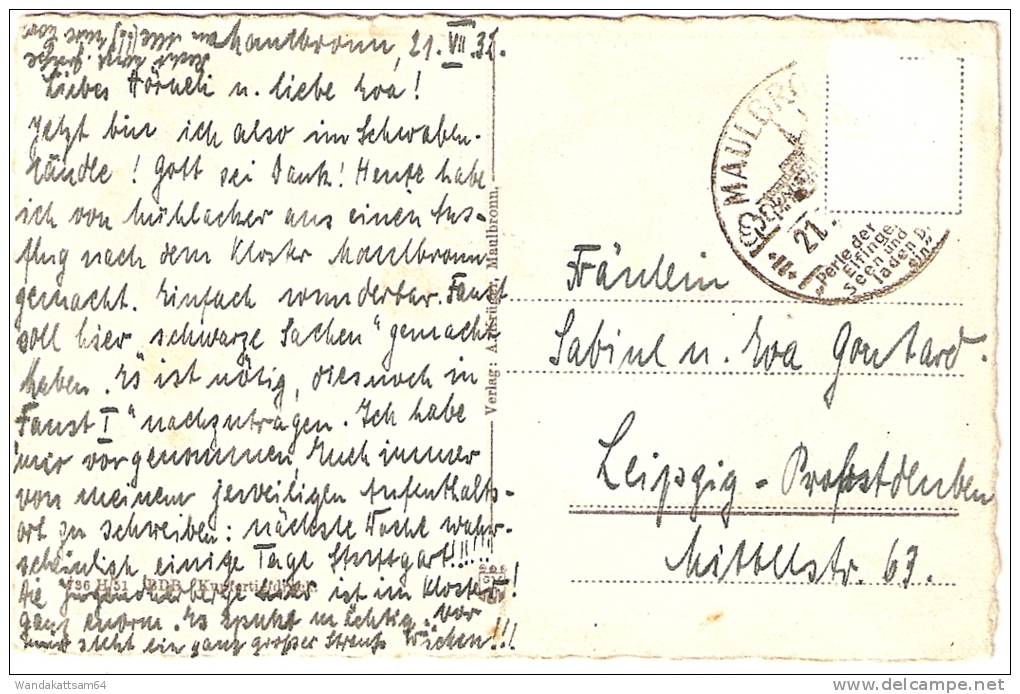 Maulbronn, 21. VII. 32.
Liebes Hörnch u. liebe Eva!
Jetzt bin ich also im Schwaben-
ländle! Gott sei Dank! Heute habe
ich von Mühlacker aus einen Aus-
flug nach dem Kloster Maulbronn
gemacht. Einfach wunderbar. Faust
soll hier „schwarze Sachen“ gemacht
haben. Es ist nötig, dies noch in
„Faust I“ nachzutragen. Ich habe
mir vorgenommen, Euch immer
von meinem jeweiligen Aufenthalts-
ort zu schreiben: nächste Woche wahr-
scheinlich einige Tage Stuttgart!!!!!
Die Jugendherberge hier ist im Kloster!
ganz enorm. Es spukt mächtig. Vor
mir steht ein ganz großer Strauß Wicken!!!
736 H/31 BDB (Kupfertiefdruck)
Verlag Maulbronn
MAULBRO
21.
*11*
„Perle der
Seen und
Fräulein
Sabine u. Eva Gontard.
Leipzig-Probstdeuben
Mittelstr. 63.
Wandakattsam64
delcampe.net